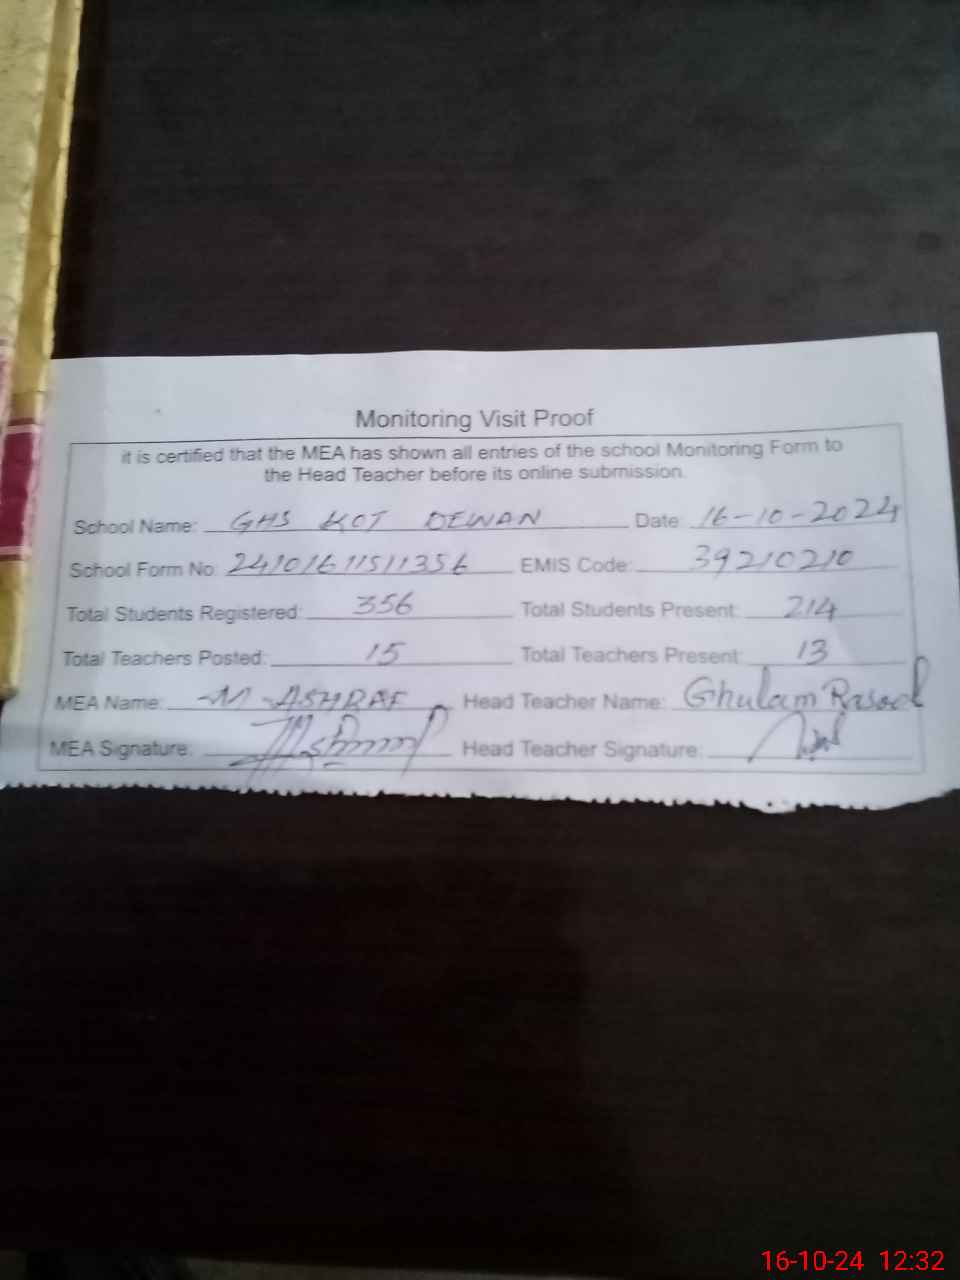 Monitoring Visit Proof
it is certified that the MEA has shown all entries of the school Monitoring Form to
the Head Teacher before its online submission.
School Name: GHS KOT DEWAN Date: 16-10-2024
School Form No: 24101611511356 EMIS Code: 39210210
Total Students Registered: 356 Total Students Present: 214
Total Teachers Posted: 15 Total Teachers Present: 13
MEA Name: M-ASHRAF Head Teacher Name: Ghulam Rasool
MEA Signature: Head Teacher Signature:
16-10-24 12:32